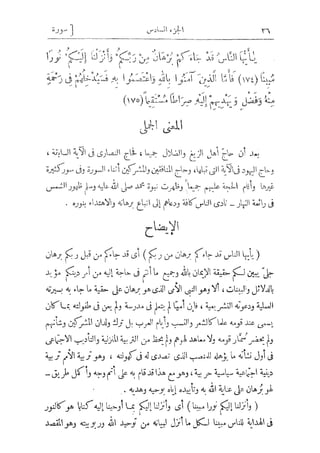 ٣٦ الجزء السادس [ سورة
يٰأَيُّهَا النَّاسُ قَدْ جَاءَكُمْ بُرْهَانٌ مِنْ رَبِّكُمْ وَأَنْزَلْنَا إِلَيْكُمْ نُورًا
مُبِينًا (١٧٤) فَأَمَّا الَّذِينَ آمَنُوا بِاللهِ وَاعْتَصَمُوا بِهِ فَسَيُدْخِلُهُمْ فِى رَحْمَةٍ
مِنْهُ وَفَضْلٍ وَيَهْدِيهِمْ إِلَيْهِ صِرَاطًا مُسْتَقِيمًا (١٧٥)
المعنى الجملى
بعد أن حاجّ أهل الزيغ والضلال جميعا ، فحاج النصارى فى الآية السابقة ،
وحاج اليهود فى الآية التى قبلها، وحاج المنافقين والمشركين أثناء السورة وفى سور كثيرة
غيرها وأقام الحجة عليهم جميعا وظهرت نبوة محمد صلى الله عليه وسلم ظهور الشمس
فى رائعة النهار ـ نادى الناس كافة ودعاهم إلى اتباع برهانه والاهتداء بنوره .
الإيضاح
( يأيها الناس قد جاءكم برهان من ربكم ) أى قد جاءكم من قبل ربكم برهان
جلىّ يبين لكم حقيقة الإيمان بالله وجميع ما أنتم فى حاجة إليه من أمر دينكم مؤيد
بالدلائل والبينات ، ألا وهو النبى الأمى الذى هو برهان على حقية ما جاء به بسيرته
العملية ودعوته التشريعية ، فإن أميا لم يتعلم فى مدرسة ولم يعن فى طفولته بما كان
يسمى عند قومه علما كالشعر والنسب وأيام العرب بل ترك ولدان المشركين وشأنهم
ولم يحضر سمّار قومه ولا معاهد لهوهم ولم يحظ من التربية المنزلية والتأديب الاجتماعى
فى أول نشأته ما يؤهله للمنصب الذى تصدى له فى كهولته ، وهو تربية الأمم تربية
دينية اجتماعية سياسية حربية ، وهو مع هذا قد قام به على أتم وجه وأكمل طريق ـ
لهو برهان على عناية الله به وتأييده إياه بوحيه وهديه .
( وأنزلنا إليكم نورا مبينا ) أى وأنزلنا إليكم بما أوحينا إليه كتابا هو كالنور
فى الهداية للناس مبينا لكل ما أنزل لبيانه من توحيد الله وربوبيته وهو المقصد